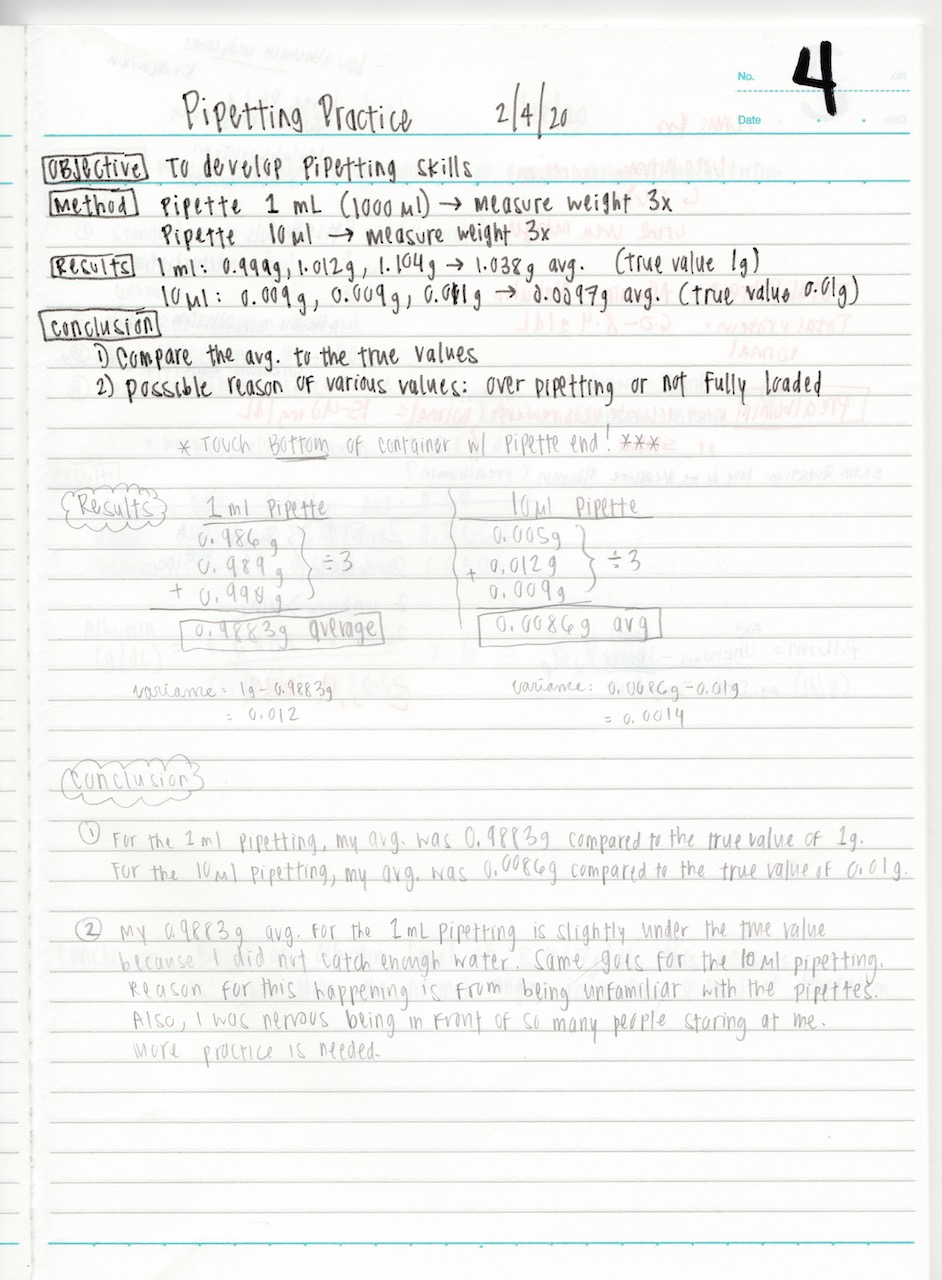 No. 4
Date
Pipetting Practice 2/4/20
Objective To develop pipetting skills
Method Pipette 1 mL (1000 µl) → measure weight 3x
Pipette 10 µl → measure weight 3x
Results 1 ml: 0.999g, 1.012g, 1.104g → 1.038g avg. (true value 1g)
10 µl: 0.009g, 0.009g, 0.011g → 0.0097g avg. (true value 0.01g)
Conclusion
1) Compare the avg. to the true values
2) possible reason of various values: over pipetting or not fully loaded
* Touch Bottom of container w/ pipette end! ***
Results 1 ml Pipette 10 µl Pipette
0.986g 0.005g
0.989g } ÷3 + 0.012g } ÷3
+ 0.990g 0.009g
0.9883g average 0.0086g avg
variance = 1g - 0.9883g variance: 0.0086g - 0.01g
= 0.012 = 0.0014
Conclusion
① For the 1 ml pipetting, my avg. was 0.9883g compared to the true value of 1g.
For the 10 µl pipetting, my avg. was 0.0086g compared to the true value of 0.01g.
② My 0.9883g avg. for the 1 mL pipetting is slightly under the true value
because I did not catch enough water. Same goes for the 10 µl pipetting.
Reason for this happening is from being unfamiliar with the pipettes.
Also, I was nervous being in front of so many people staring at me.
More practice is needed.